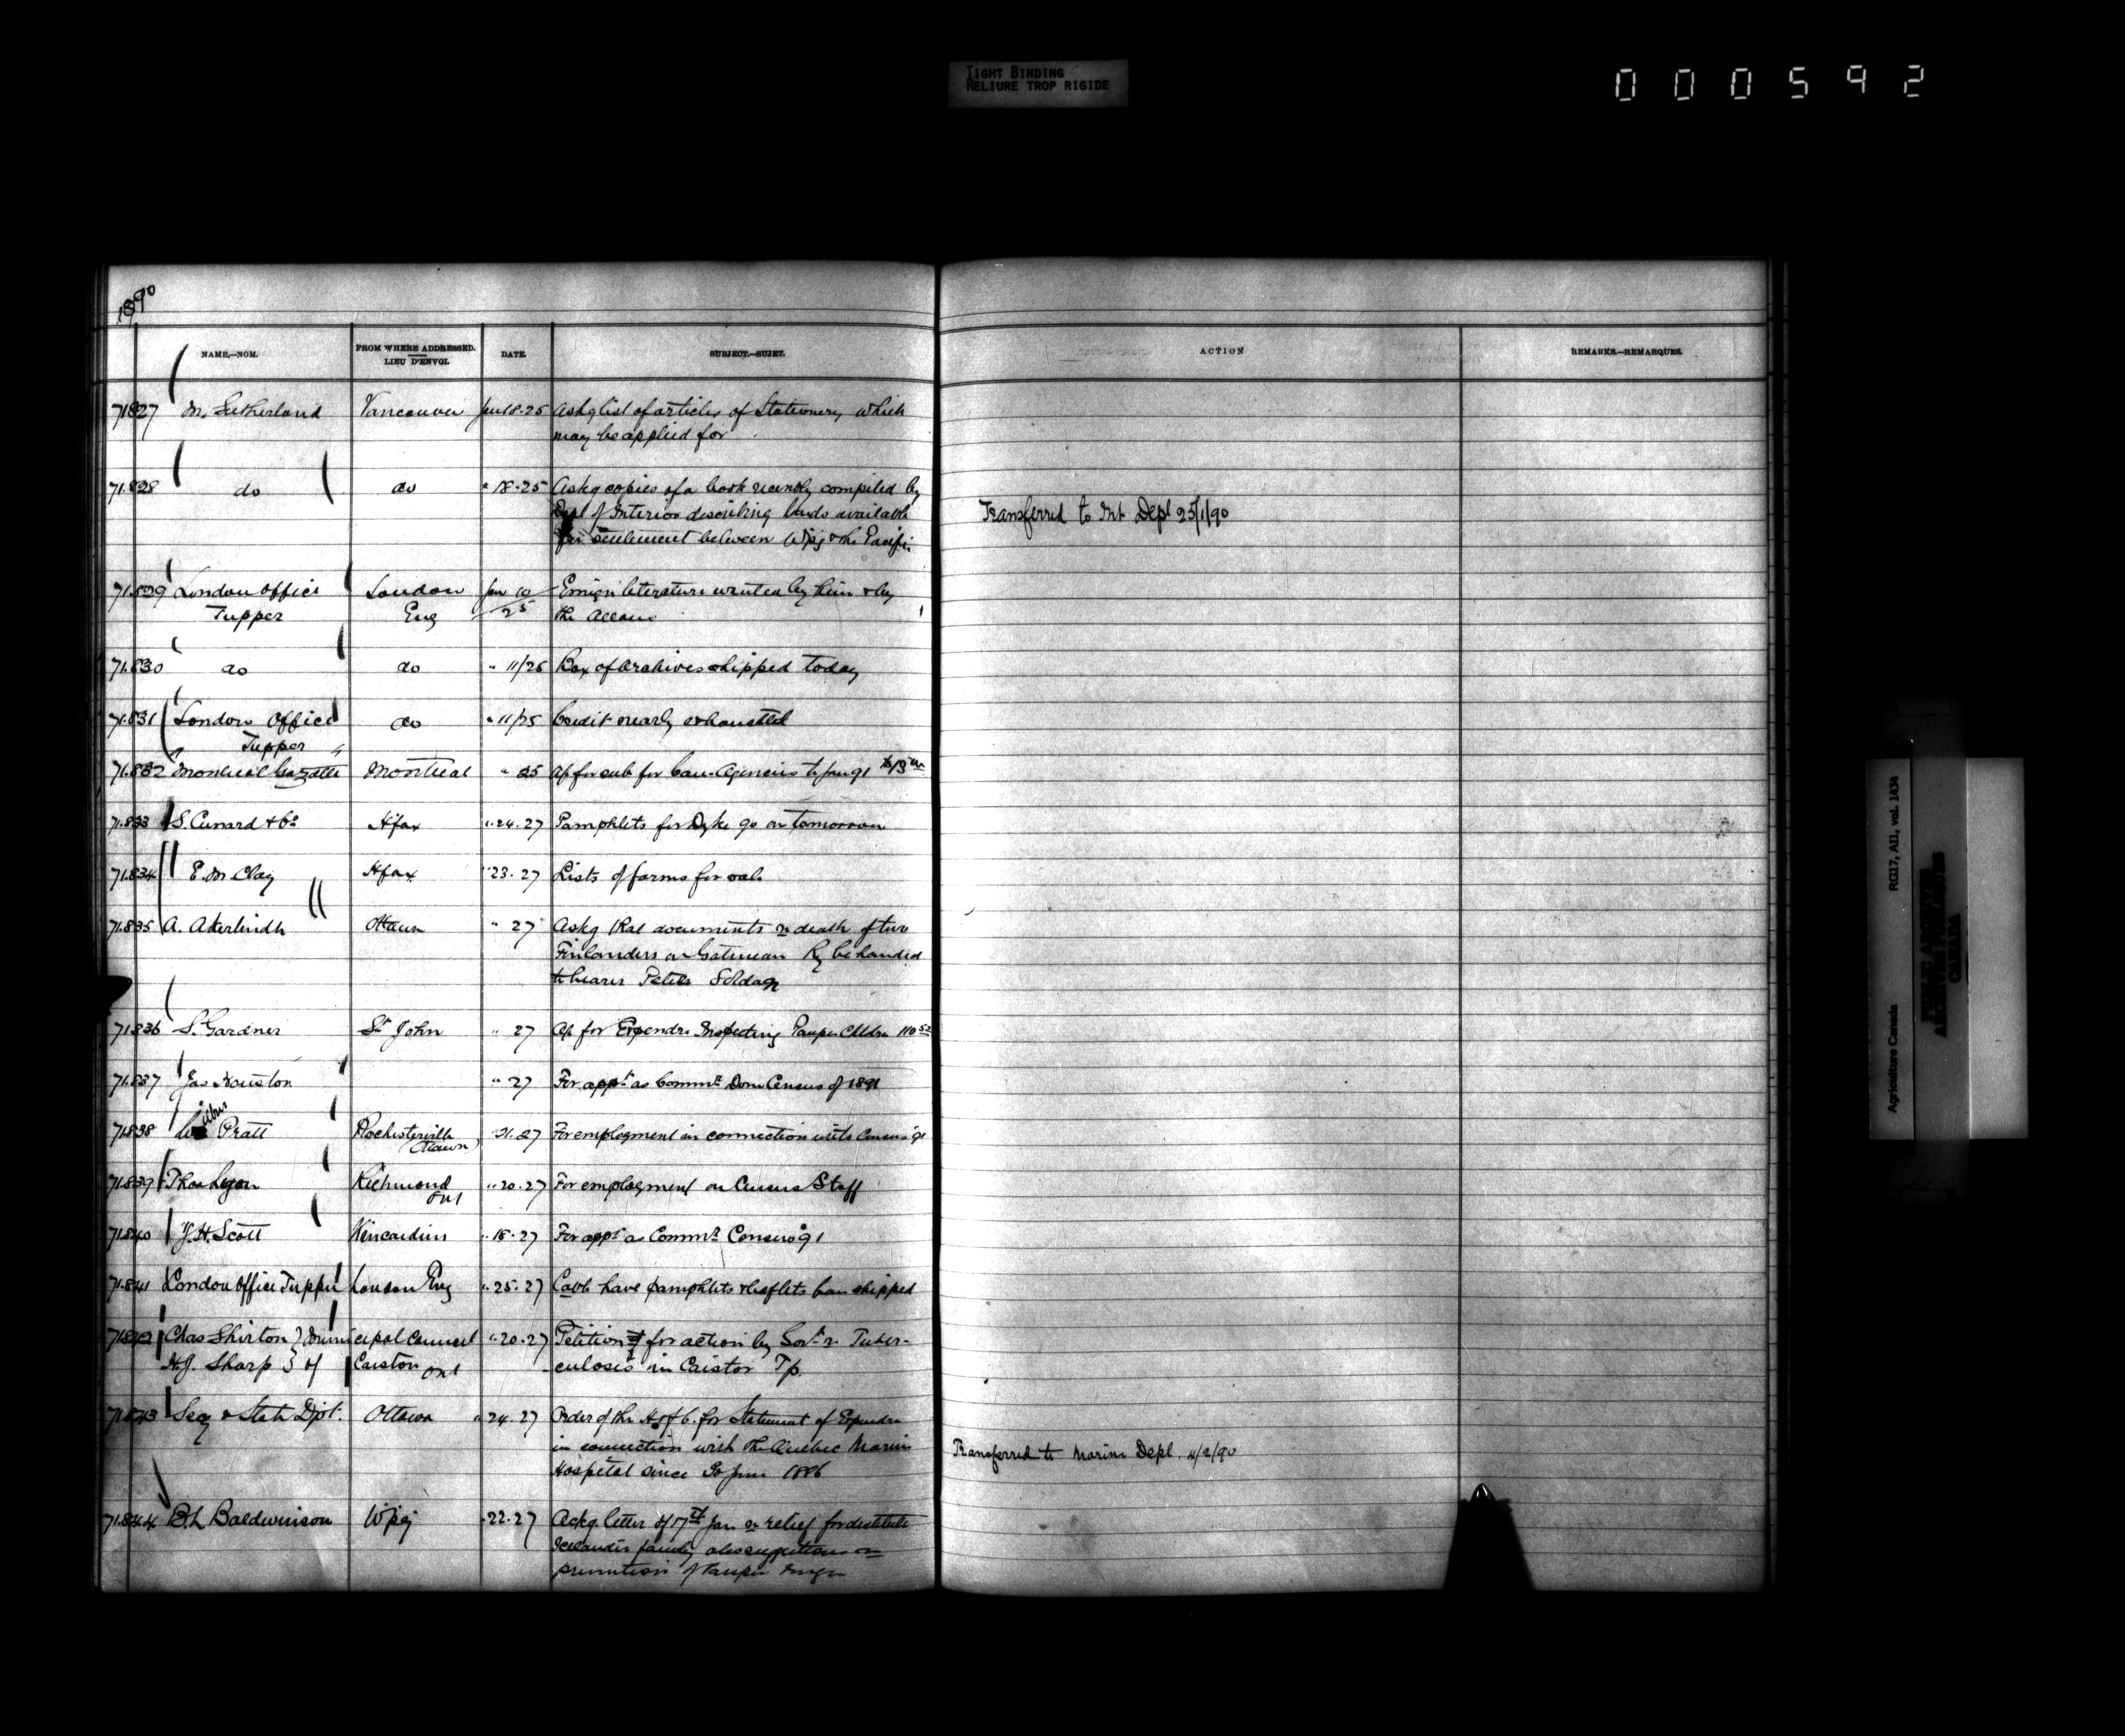 TIGHT BINDING
RELIURE TROP RIGIDE
000592
1890
NAME.—NOM. FROM WHERE ADDRESSED. LIEU D'ENVOI. DATE. SUBJECT.—SUJET. ACTION REMARKS.—REMARQUES.
71827 M. Sutherland Vancouver Jan 18.25 Askg list of articles of Stationery which
may be applied for
71.828 do do " 18.25 Askg copies of a book recently compiled by
Dept of Interior describing lands available
for settlement between Wpg & the Pacific
Transferred to Int Dept 25/1/90
71.829 London Office London Jan 10 Emign literature wanted by him & by
Tupper Eng 25 the Allans
71.830 do do " 11/25 Box of Archives shipped today
71.831 London Office do " 11/25 Credit nearly exhausted
Tupper
71.832 Montreal Gazette Montreal " 25 a/c for sub for Can. Agencies to Jan 91
71.833 S. Cunard & Co Hfax " 24.27 Pamphlets for Dyke go on tomorrow
71.834 E. M. Clay Hfax " 23.27 Lists of farms for sale
71.835 A. Akerlindh Ottawa " 27 Askg that documents re death of two
Finlanders on Gatineau Ry be handed
to bearer Peter Soldan
71.836 S. Gardner St John " 27 a/c for Expendre Inspecting Pauper Chldn 110
71.837 Jas Houston " 27 For appt as Commr Dom Census of 1891
71.838 Wilbur Pratt Rochesterville " 21.27 For employment in connection with Census 91
Ottawa
71.839 Thos Lyon Richmond " 20.27 For employment on Census Staff
Ont
71.840 J. H. Scott Kincardine " 18.27 For appt as Commr Census 91
71.841 London Office Tupper London Eng " 25.27 Cable have pamphlets & leaflets been shipped
71.842 Chas Shirton } Municipal Council " 20.27 Petition for action by Govt re Tuber-
H. J. Sharp } of Caistor Ont culosis in Caistor Tp.
71.843 Secy of State Dpt. Ottawa " 24.27 Order of the H of C. for Statement of Expendre
in connection with the Quebec Marine
Hospital since 30 June 1886
Transferred to Marine Dept. 4/2/90
71.844 B. L. Baldwinson Wpg " 22.27 Ackg letter of 17th Jan re relief for destitute
Icelander family also suggestions re
prevention of Pauper Emgn
Agriculture Canada RG17, AI1, vol. 1434
PUBLIC ARCHIVES
CANADA